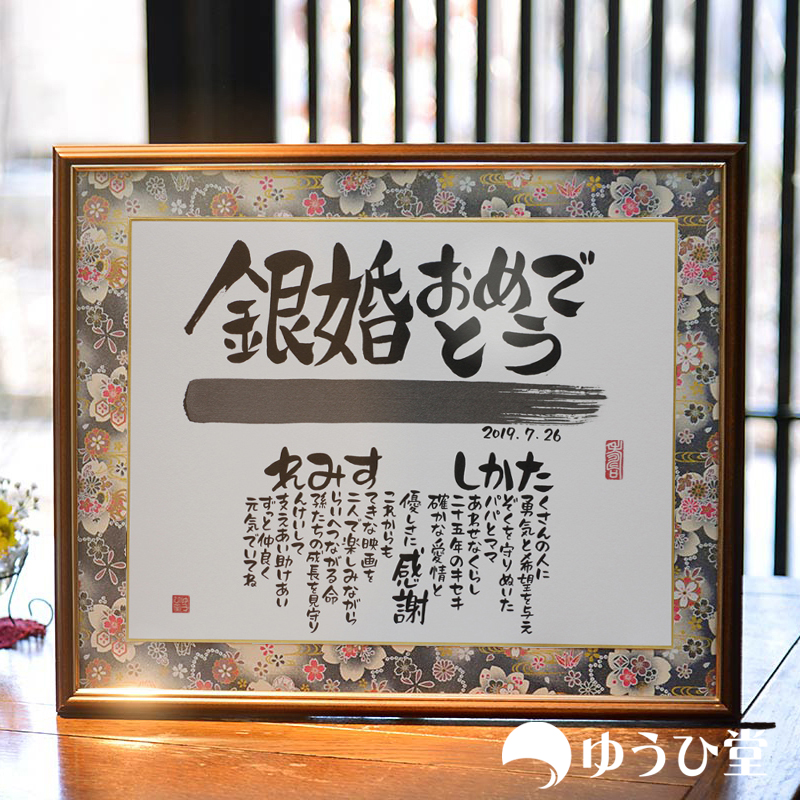 銀婚おめで
とう
2019.7.26
たかし
くさんの人に
勇気と希望を与え
ぞくを守りぬいた
パパとママ
あわせなくらし
二十五年のキセキ
確かな愛情と
優しさに
感謝
すみれ
これからも
てきな映画を
二人で楽しみながら
らいへつながる命
孫たちの成長を見守り
んけいして
ささえあい助けあい
ずっと仲良く
元気でいてね
ゆうひ堂